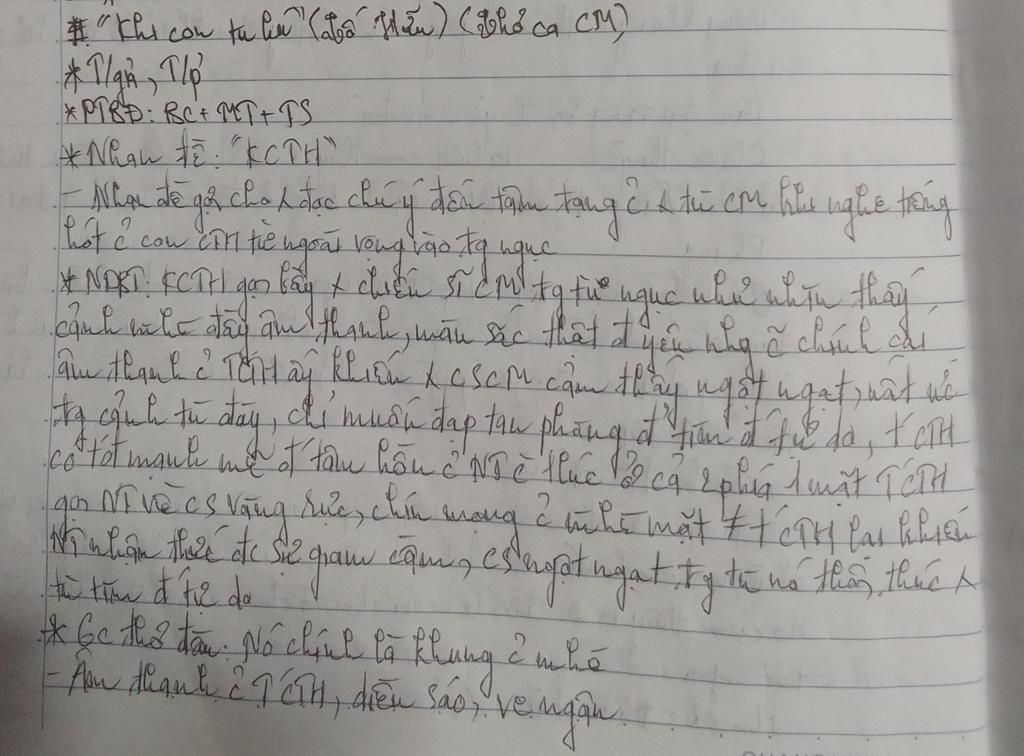 # "Khi con tu hú" (Tố Hữu) (Thơ ca CM)
* T/giả, T/p
* PTBĐ: BC + MT + TS
* Nhan đề: "KCTH"
- Nhan đề gợi cho λ đọc chú ý đến tâm trạng ở λ tù CM khi nghe tiếng
hót ở con CTH từ ngoài vọng vào tg ngục
* NDKT: KCTH gọi bầy λ chiến sĩ CM tg tù ngục như nhìn thấy
cảnh m.hè đầy âm thanh, màu sắc thật đ yêu nhg c̃ chính cái
âm thanh ở TCTH ấy khiến λ CSCM cảm thấy ngột ngạt, uất ức
tg cảnh tù đày, chỉ muốn đạp tan phòng đ' tiến đ' tự do, t CTH
có tđ mạnh mẽ đ' tâm hồn ở NT thức ở cả 2 phía 1 mặt TCTH
gọi NT về cs vặng sực, chín mọng ở m.hè mặt ≠ t CTH lại khiến
NT nhận thức đc sự giam cầm, cs ngột ngạt tg tù nó thôi thúc λ
tù tìm đ' tự do
* 6c thơ đầu: Nó chính là khung ở m.hè
- Âm thanh ở TCTH, diều sáo, ve ngân